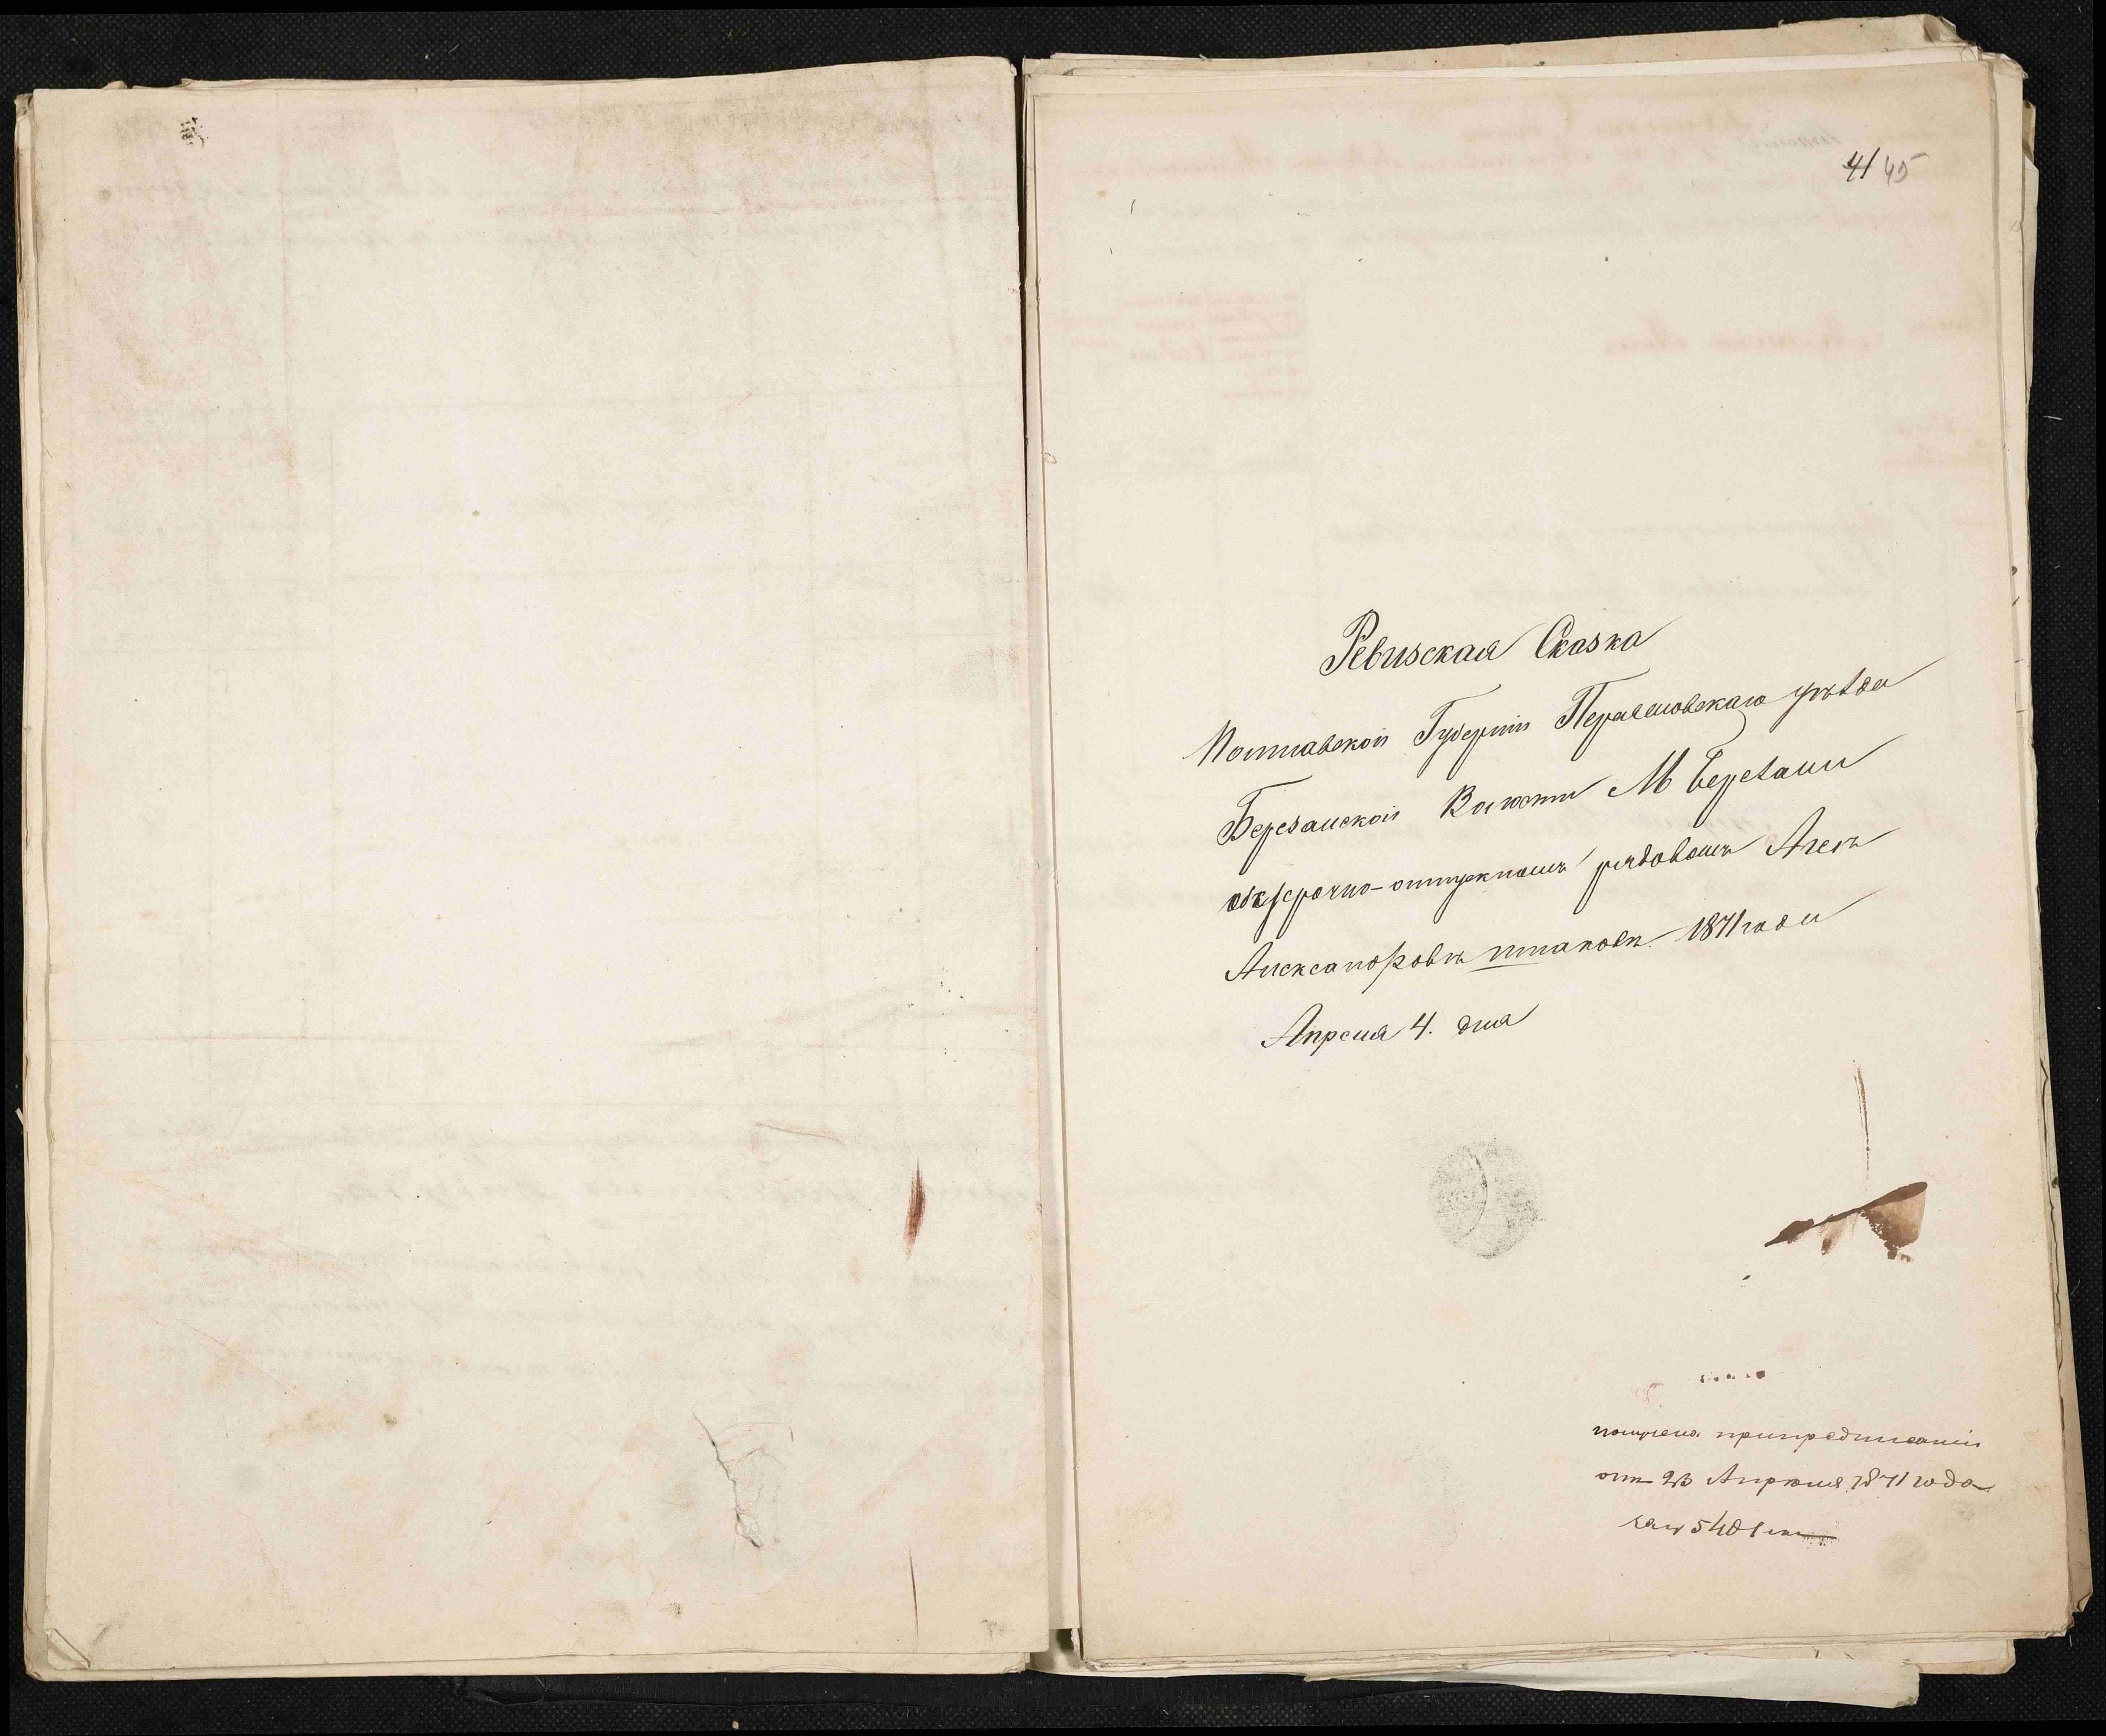 41 45
Ревизская Сказка
Полтавской Губерніи Переяславскаго уѣзда
Березанской Волости М Березани
безсрочно-отпускномъ рядовомъ
Александровѣ 1871 года
Апреля 4. дня
получена при предписаніи
отъ 23 Апреля 1871 года